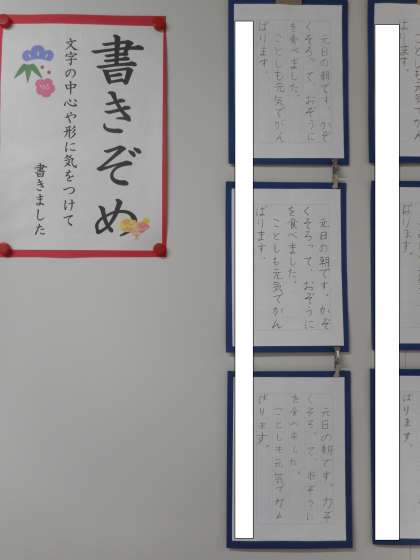 書きぞめ
文字の中心や形に気をつけて
書きました
元日の朝です。かぞ
くそろって、おぞうに
を食べました。
ことしも元気でがん
ばります。
元日の朝です。かぞ
くそろって、おぞうに
を食べました。
ことしも元気でがん
ばります。
元日の朝です。かぞ
くそろって、おぞうに
を食べました。
ことしも元気でがん
ばります。
ばります。
ばります。
ばります。